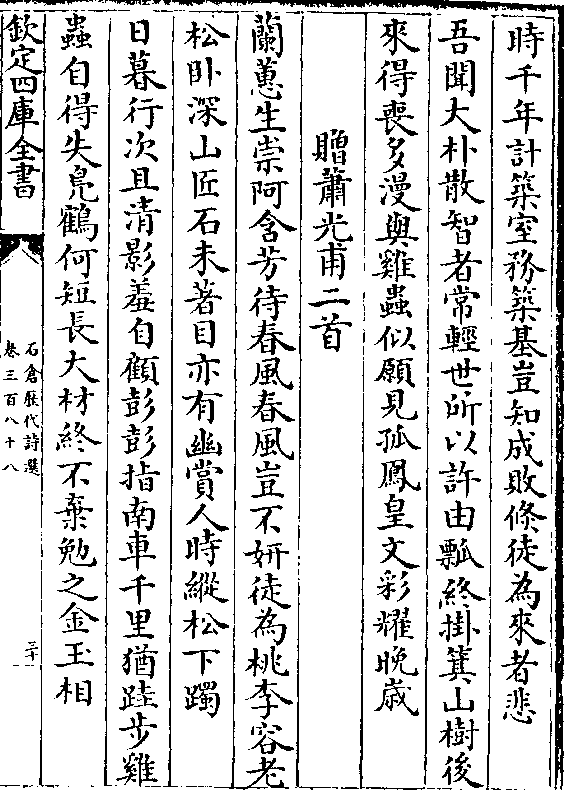 時千年計築室務築基豈知成敗條徒為來者悲
吾聞大朴散智者常輕世所以許由瓢終掛箕山樹後
來得喪多漫與雞蟲似願見孤鳳皇文彩耀晚歳
贈蕭光甫二首
蘭蕙生崇阿含芳待春風春風豈不妍徒為桃李容老
松卧深山匠石未著目亦有幽賞人時縱松下躅
日暮行次且清影羞自顧彭彭指南車千里猶跬步雞
蟲自得失鳬鶴何短長大材終不棄勉之金玉相
欽定四庫全書
石倉歷代詩選
卷三百八十八
二十